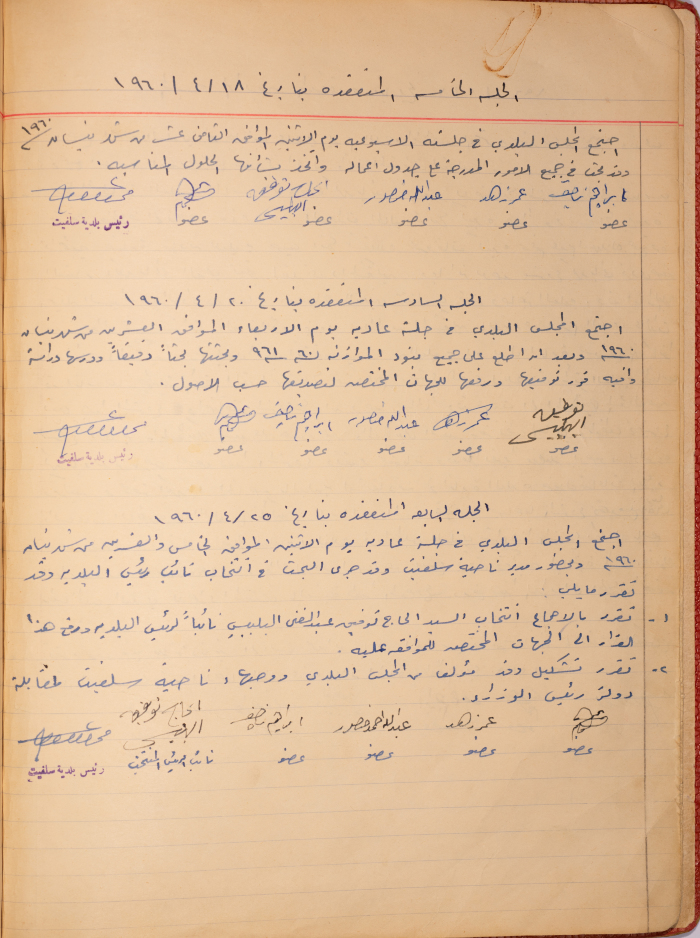 الجلسه الخامسه المنعقده بتاريخ ١٩٦٠/٤/١٨
اجتمع المجلس البلدي في جلسته الاسبوعيه يوم الاثنين الموافق الثامن عشر من شهر نيسان سنة ١٩٦٠
وقد بحث في جميع الامور المدرجة على جدول اعماله واتخذ بشأنها الحلول المناسبه .
ابراهيم نصيف عمر زهد عبدالله خضور الحاج توفيق البلبيسي
عضو عضو عضو عضو عضو رئيس بلدية سلفيت
الجلسه السادسه المنعقده بتاريخ ١٩٦٠/٤/٢٠
اجتمع المجلس البلدي في جلسة عاديه يوم الاربعاء الموافق العشرين من شهر نيسان
سنة ١٩٦٠ وبعد ان اطلع على جميع بنود الموازنه لسنة ٩٦٠ ٩٦١ وبحثها بحثاً دقيقاً ودرسها دراسة
وافيه قرر توقيعها ورفعها للجهات المختصه لتصديقها حسب الاصول .
توفيق البلبيسي عمر زهد عبدالله خضور ابراهيم نصيف
عضو عضو عضو عضو عضو رئيس بلدية سلفيت
الجلسه السابعه المنعقده بتاريخ ١٩٦٠/٤/٢٥
اجتمع المجلس البلدي في جلسة عاديه يوم الاثنين الموافق الخامس والعشرين من شهر نيسان
سنة ١٩٦٠ وبحضور مدير ناحية سلفيت وقد جرى البحث في انتخاب نائب رئيس البلديه وقد
تقرر مايلي :
١- تقرر بالاجماع انتخاب السيد الحاج توفيق عبدالغني البلبيسي نائباً لرئيس البلديه ورفع هذا
القرار الى الجهات المختصه للموافقه عليه .
٢- تقرر تشكيل وفد مؤلف من المجلس البلدي ووجهاء ناحية سلفيت لمقابلة
دولة رئيس الوزراء .
عمر زهد عبدالله احمد خضور ابراهيم نصيف الحاج توفيق البلبيسي
عضو عضو عضو عضو نائب الرئيس المنتخب رئيس بلدية سلفيت